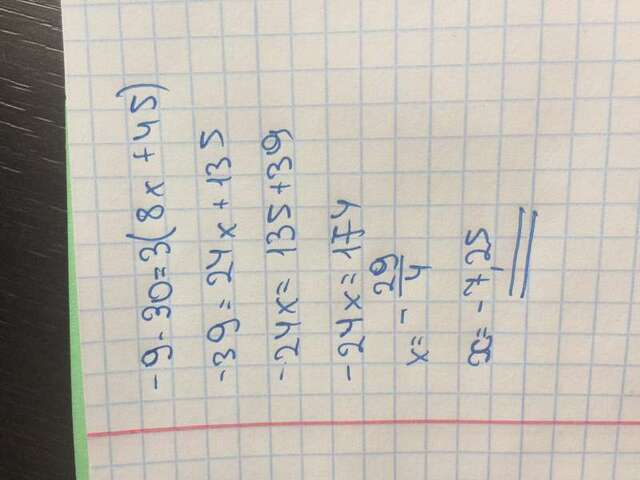 -9-30=3(8x+45)
-39=24x+135
-24x=135+39
-24x=174
x=-29/4
x=-7,25